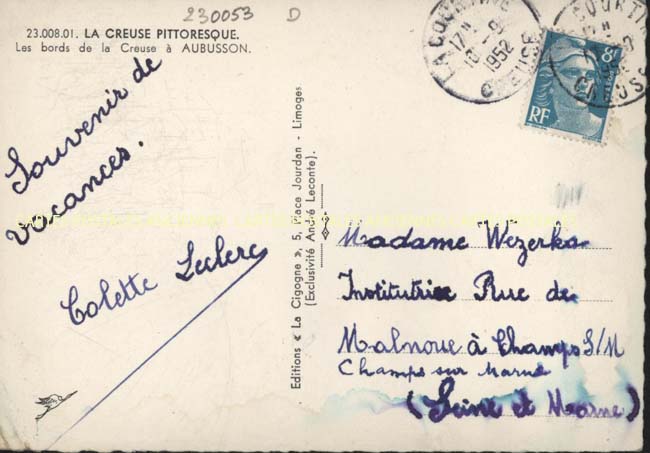 230053 D
23.008.01. LA CREUSE PITTORESQUE.
Les bords de la Creuse à AUBUSSON.
Souvenir de
vacances.
Colette Leclerc
Editions « La Cigogne », 5, Place Jourdan - Limoges
(Exclusivité André Leconte).
LA COURTINE
17H
10-9
1952
CREUSE
COURTINE
CREUSE
8F
RF
Madame Wezerka
Institutrice Rue de
Malnoue à Champs S/M
Champs sur Marne
(Seine et Marne)